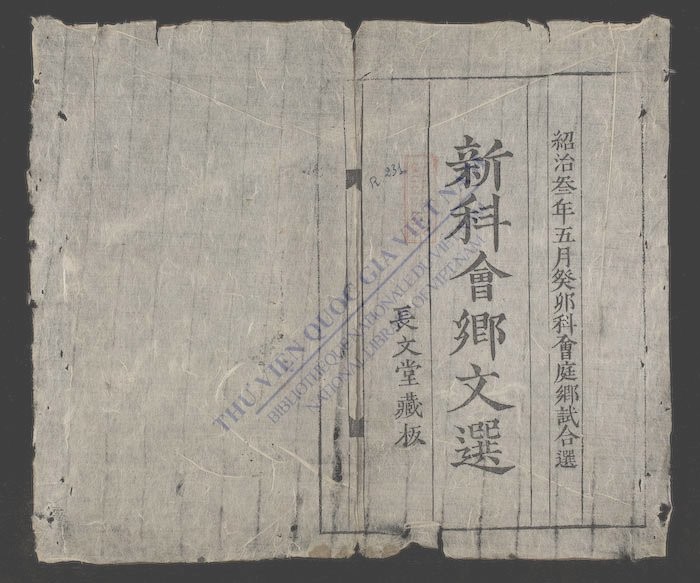 紹治叁年五月癸卯科會庭鄉試合選
新科會鄉文選
長文堂藏板
R.231
THƯ VIỆN QUỐC GIA VIỆT NAM
BIBLIOTHÈQUE NATIONALE DU VIETNAM
NATIONAL LIBRARY OF VIETNAM